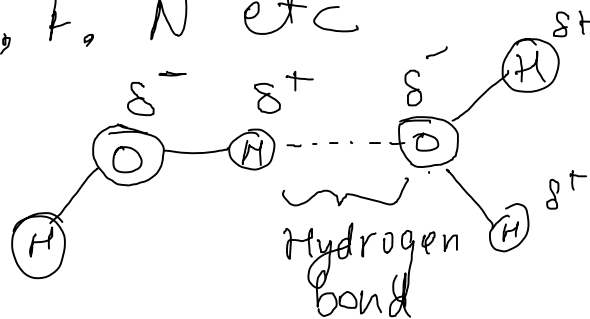 , F, N etc
δ- δ+ δ- H δ+
O H O
H H δ+
Hydrogen
bond